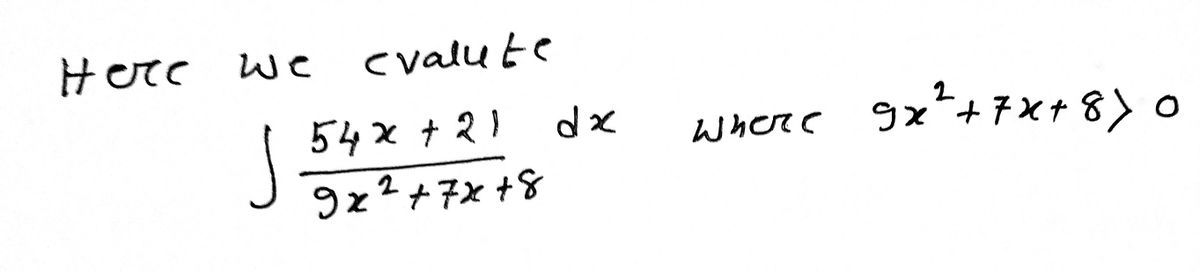 Here we evalute
∫ (54x + 21)/(9x² + 7x + 8) dx where 9x² + 7x + 8 > 0